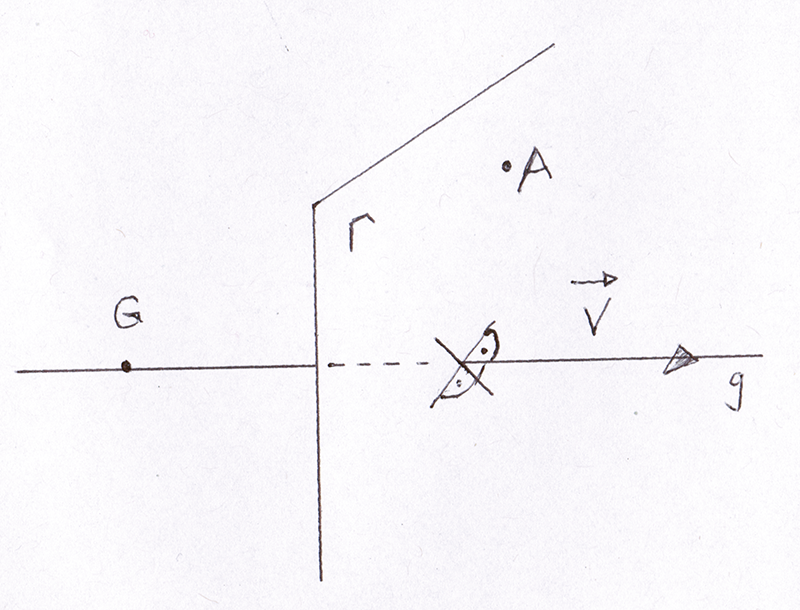 A
Γ
G
V
g